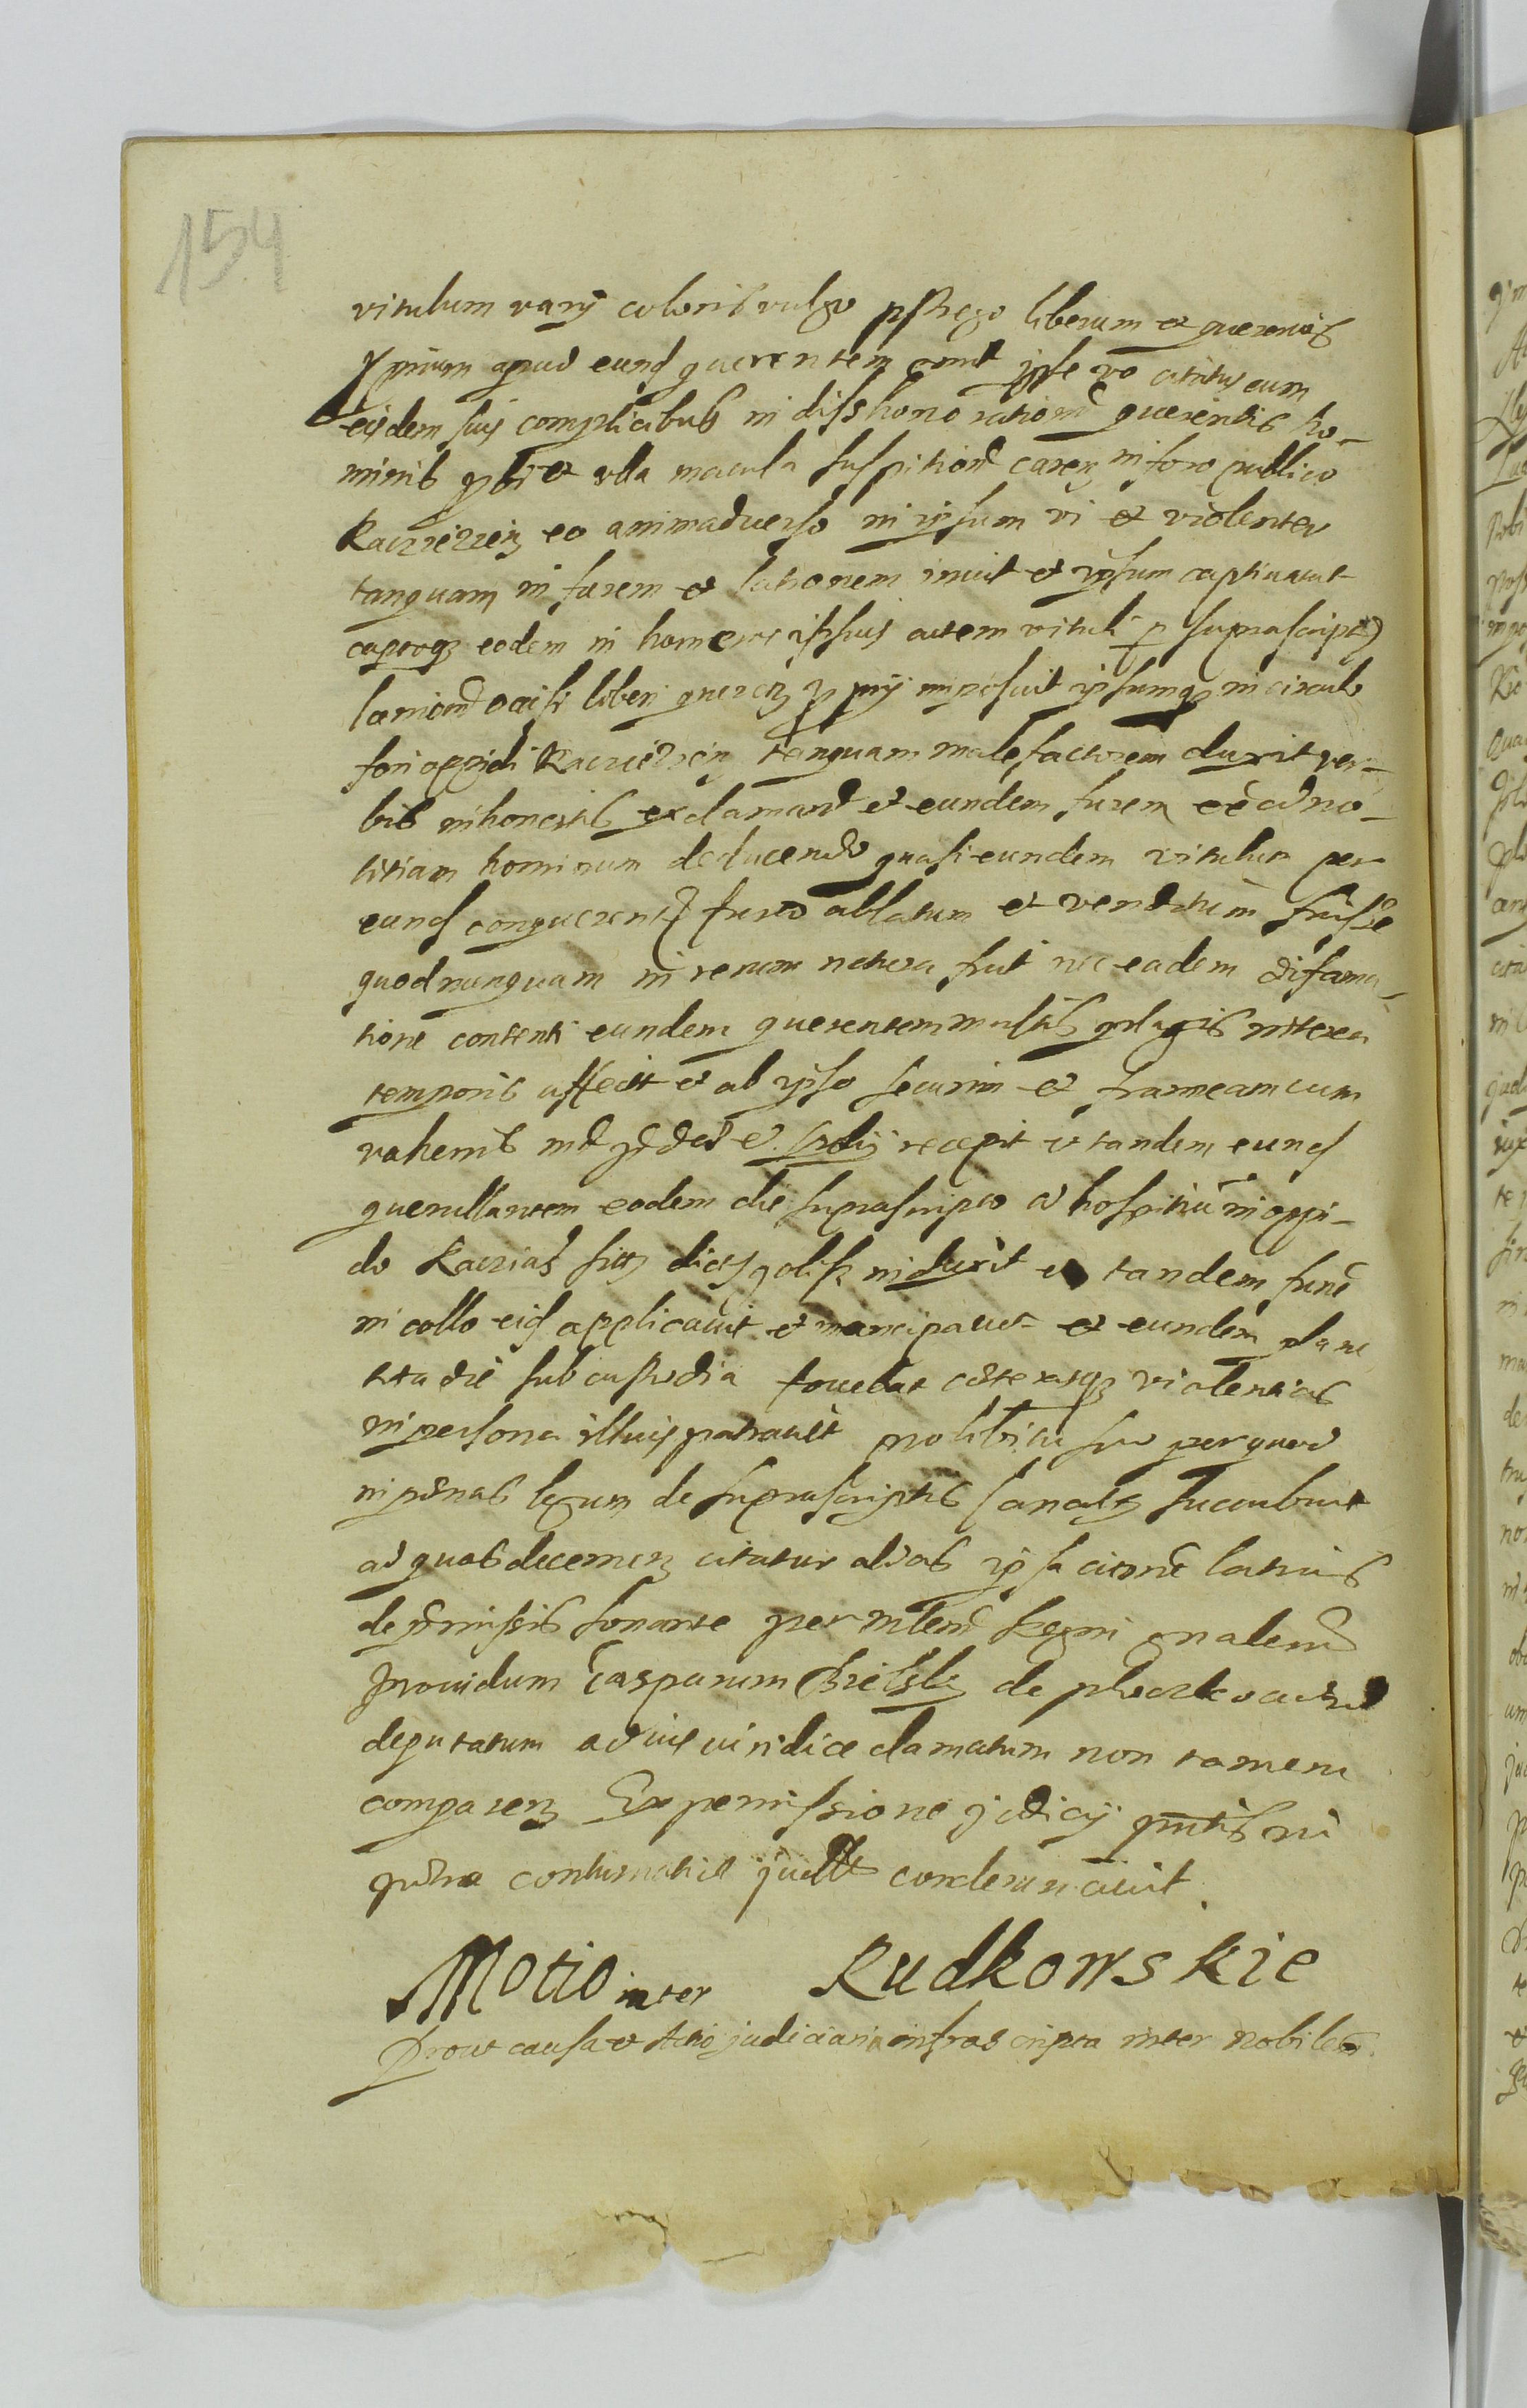 154
vitulum varij coloris vulgo pstrego liberum et querentis
proprium apud eund querentem emit ipse vo citatus cum
eisdem suis complicibus in dishonorationē querentis ho-
minis probi et ulla macula suspitionē carenz in foro publico
Raczązien eo animadverso in ipsum vi et violenter
tanquam in furem et latronem irruit et ipsum captivavit
captoqz eodem in humeros ipsius cutem vituli p suprascript
lanionē occisi liberi querenz pprij imposuit ipsumqz in circulo
fori oppidi Racziązen tanquam malefactorem duxit ver-
bis inhonestis exclamand et eundem furem eē ad no-
titiam hominum deducendo quasi eundem vitulum per
eund conquerent furto ablatum et venditum fuisse
quod nunquam in rerum natura fuit nec eadem difama-
tione contenti eundem querentem multis plagis interea
temporis affecit et ab ipso securim et frameam cum
recepit et tandem eund
querullantem eodem die suprascripto ad hospitiū in oppi-
do Raczias sitt induxit et tandem funē
in collo eid applicavit et mancipavit et eundem
die sub custodia fovebat caeterasqz violentias
in persona illius patravit pro libitu suo per quod
in paenas legum de suprascriptis sancitz succubuit
ad quas decernenz citatur alias ipsa citatione latius
de praemissis sonante per mlem Regni gnalem
providum Casparum Bielski de
deputatum ad ius juridice clamatum non tamen
comparenz Ex permissione judicij pntis in
paena contumatiae condemnavit.
Motio inter Rudkowskie
Prout causa et Actio judiciaria infrascripta inter Nobiles